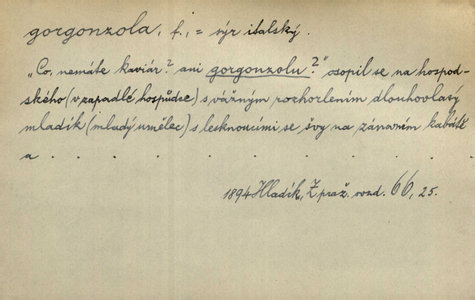 gorgonzola, f., = sýr italský.
„Co, nemáte kaviár? ani gorgonzolu?" osopil se na hospod-
ského (v zapadlé hospůdce) s vážným rozhorlením dlouhovlasý
mladík (mladý umělec) s lesknoucími se švy na zánovním kabátě
a . . . . . . . . . . . .
1894 Hladík, Z praž. ovzd. 66, 25.